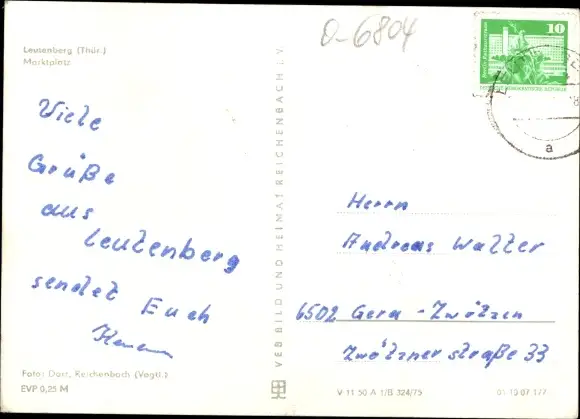 Leutenberg (Thür.)
Marktplatz
O-6804
10
Viele
Grüße
aus
Leutenberg
sendet Euch
Herrn
Andreas Walter
6502 Gera - Zwötzen
Zwötzner straße 33
VEB BILD UND HEIMAT REICHENBACH I. V.
a
Foto: Darr, Reichenbach (Vogtl.)
EVP 0,25 M
V 11 50 A 1/B 324/75
01 10 07 177